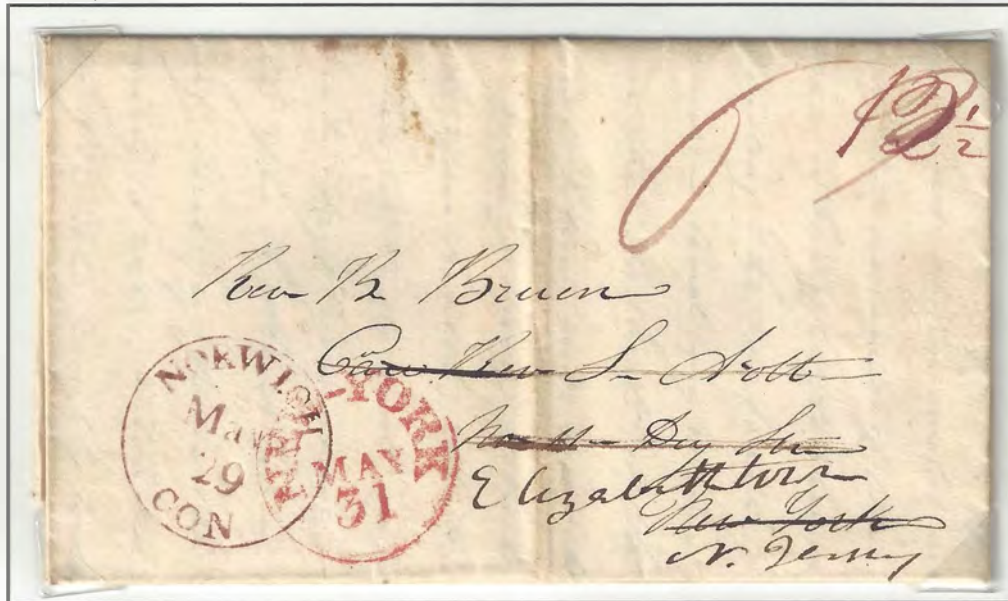 6 12 1/2
Rev B Bruen
Care Rev S.
Elizabethtown
New York
N. Jersey
NORWICH
May
29
CON
NEW-YORK
MAY
31